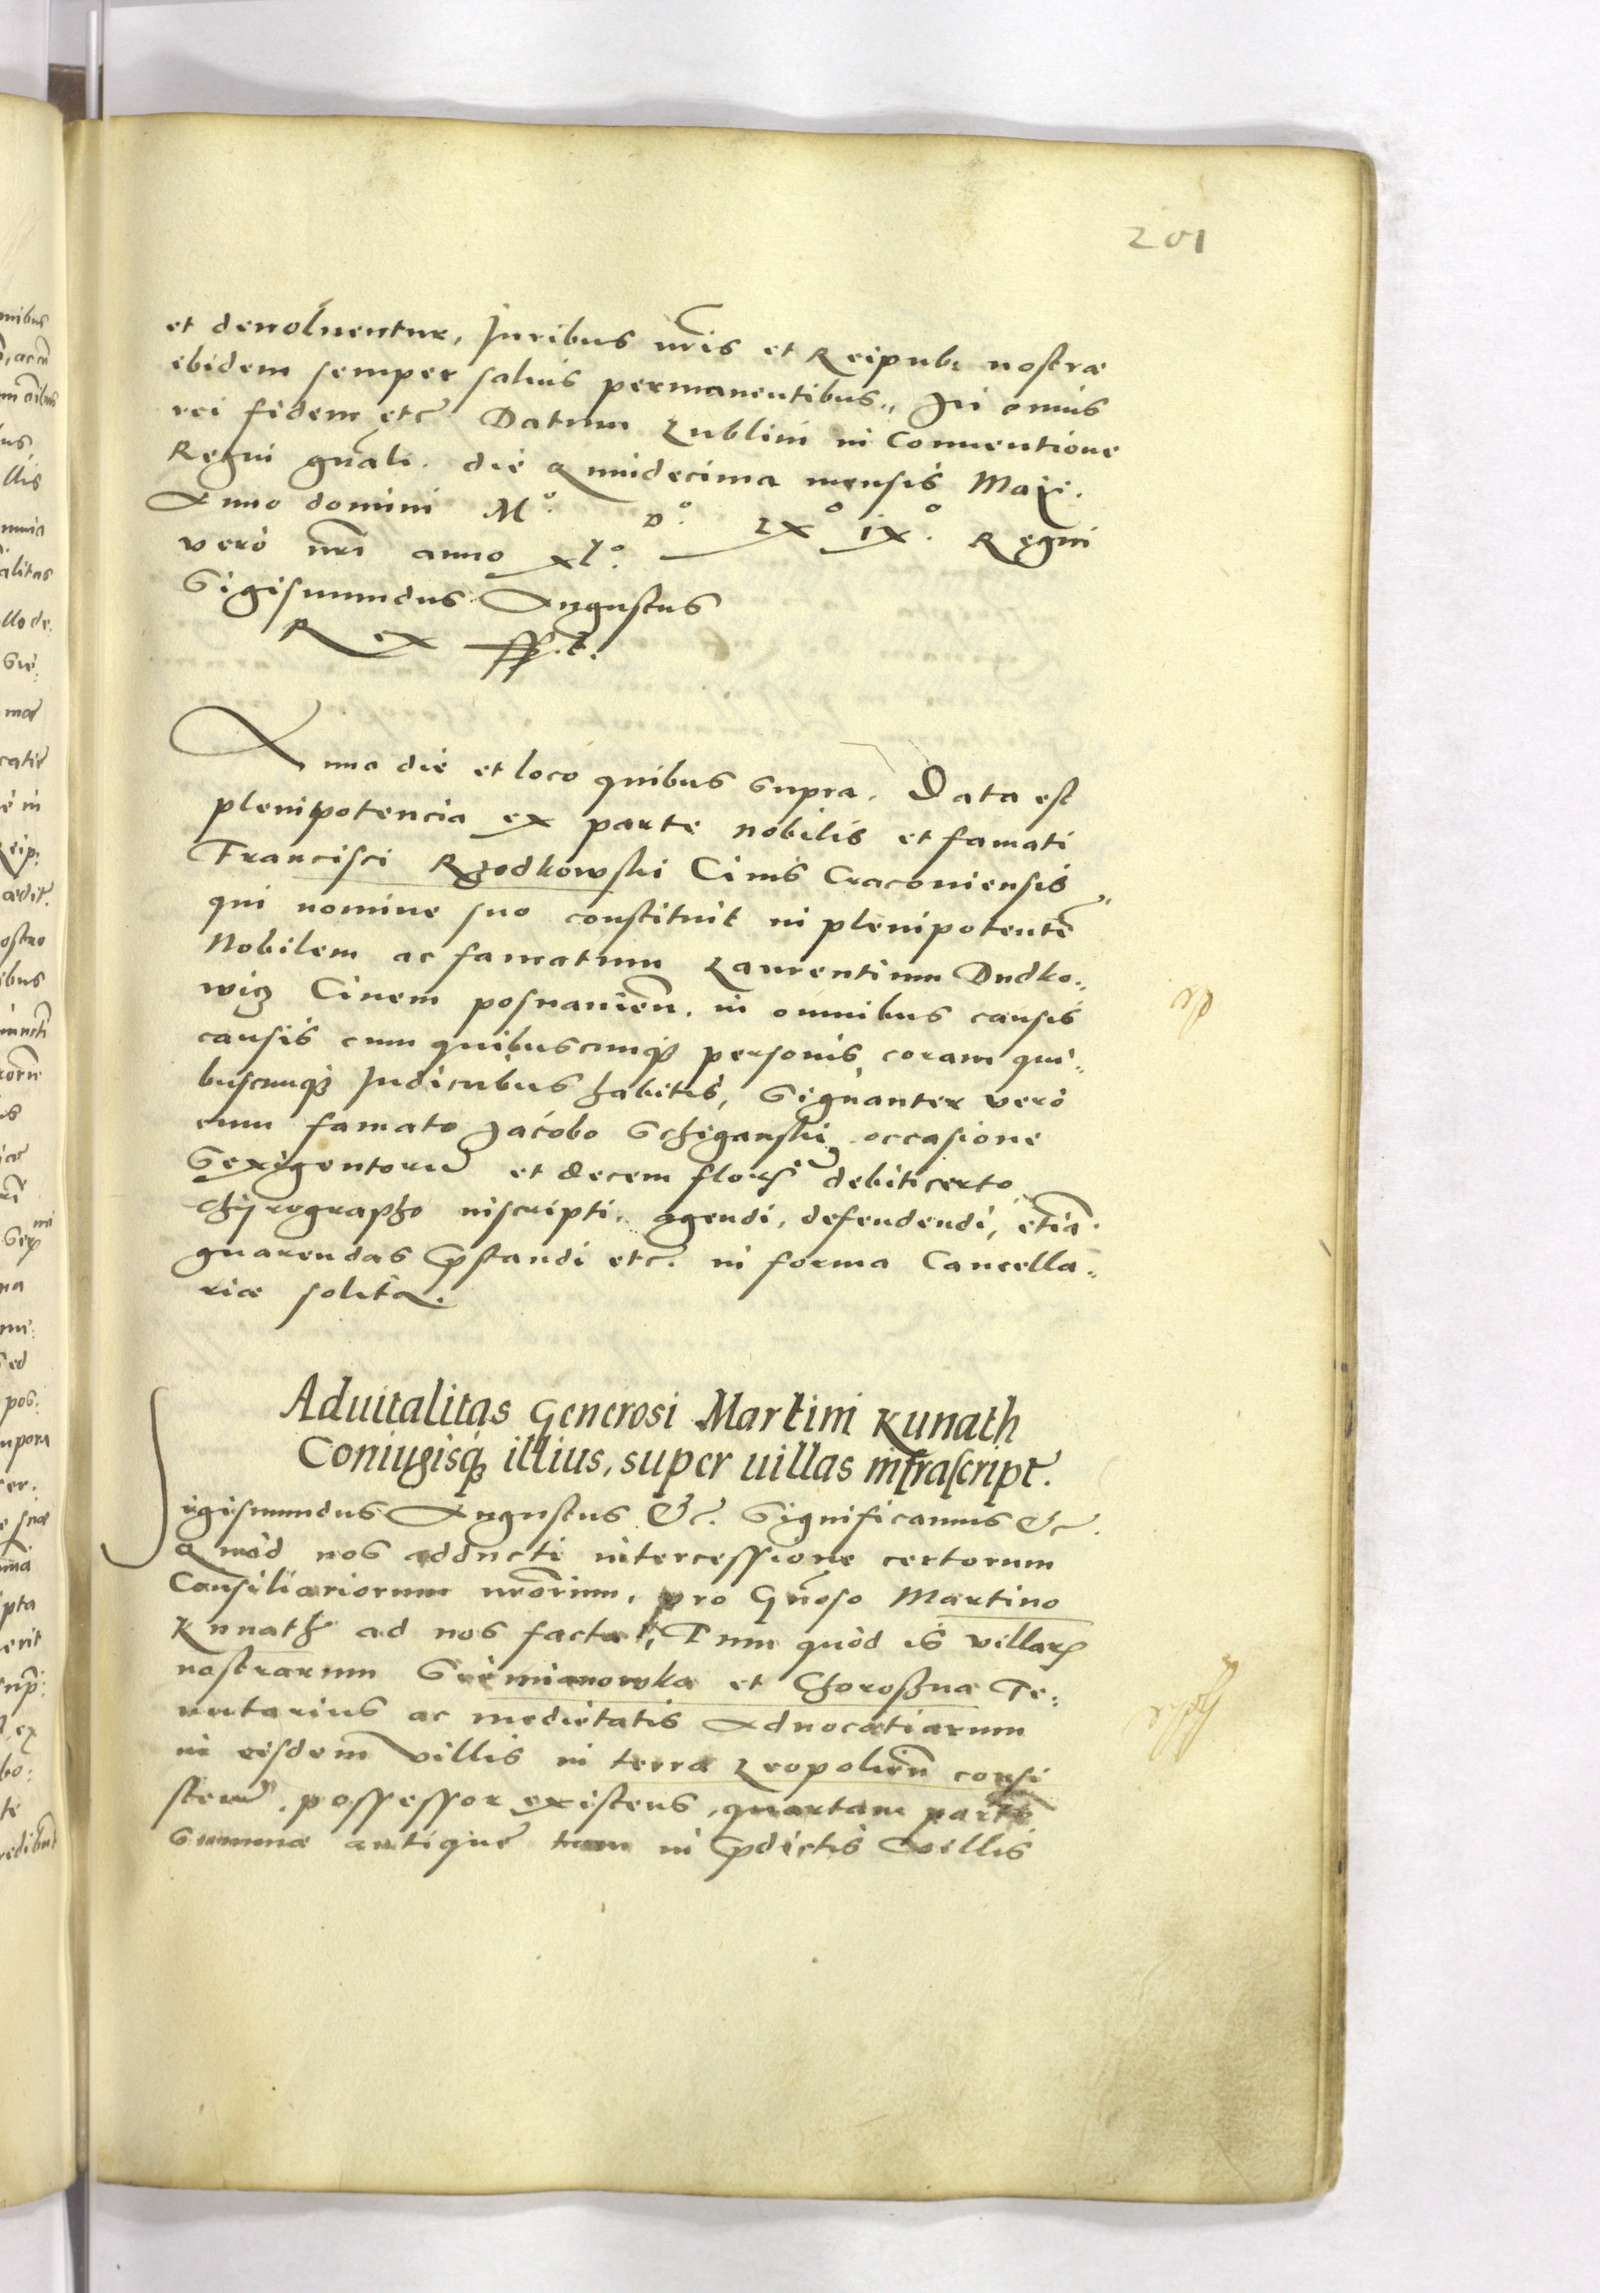 201
et devoluentur, Juribus nr̃is et Reipub: nostræ
ibidem semper saluis permanentibus,, In cuius
rei fidem etc̃ Datum Lublini in Conuentione
Regni gñali. die quindecima mensis Maÿ.
Anno domini M° D° LX° IX°. Regni
vero nr̃i anno xl°.
Sigismundus Augustus
Rex ss̃.t.
Anno die et loco quibus supra. Data est
plenipotencia ex parte nobilis et famati
Francisci Rzodkowski Ciuis Cracouiensis
qui nomine suo constituit in plenipotentẽ
Nobilem ac famatum Laurentium Dudko,,
wicz Ciuem posnanieñ. in omnibus causis
causis cum quibuscunqȝ personis coram qui,,
buscunqȝ Judicibus habitis, Signanter vero
cum famato Jacobo occasione
Sexigentorũ et decem debiti certo
chÿrographo inscripti. agendi, defendendi, etiã
quarendas p̃standi etc̃. in forma Cancella,,
riæ solita.
Aduitalitas Generosi Martini Kunath
Coniugisqȝ illius, super uillas infrascript̃.
Sigismundus Augustus &c. Significamus &c.
Quod nos adducti intercessione certorum
Consiliariorum nr̃orum, pro Gñoso Martino
Kunath ad nos facta, Tum quòd is villarꝝ
nostrarum Siemianowka et Chorosna Te:
nutarius ac medietatis Aduocatiarum
in eisdem villis in terra Leopolieñ consi
stenũ. possessor existens, quartam partẽ
summæ antiquẽ tam in p̃dictis villis